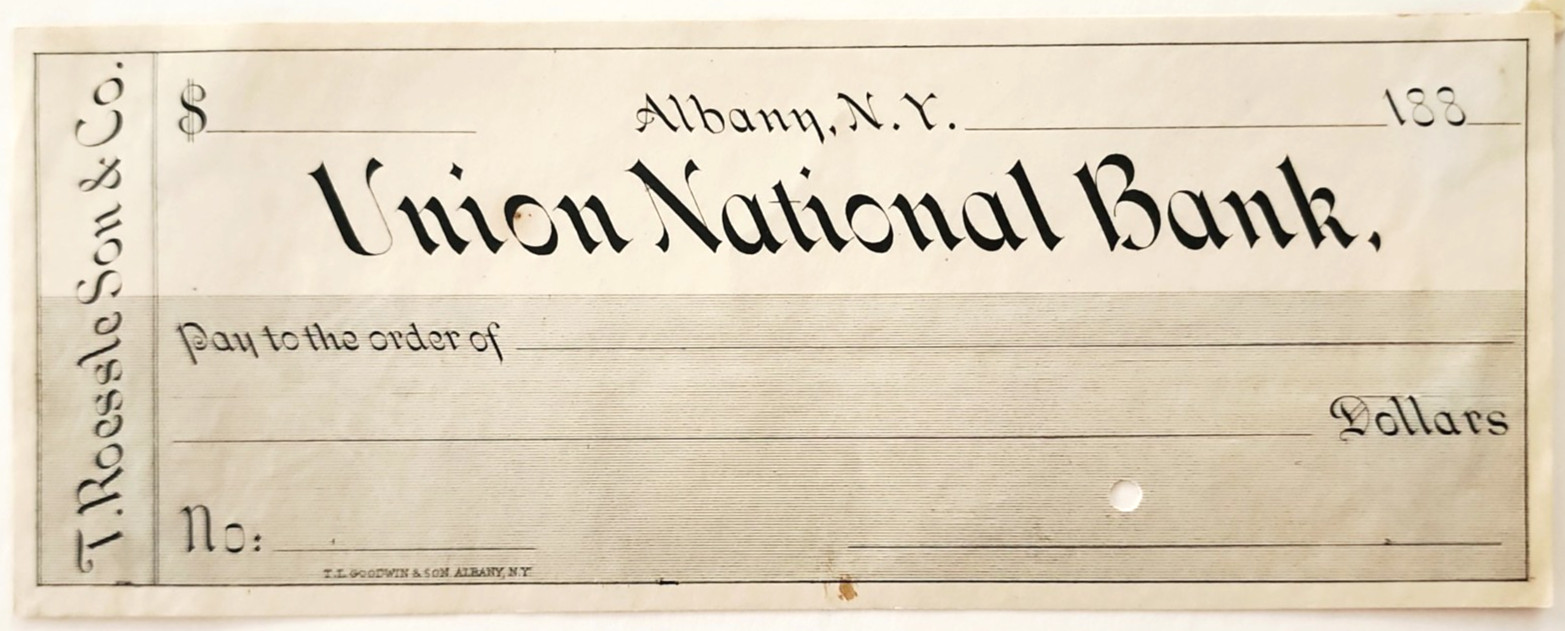 T. Roessle Son & Co.
$ Albany, N.Y. 188
Union National Bank.
Pay to the order of
Dollars
No:
T.L. GOODWIN & SON. ALBANY, N.Y.